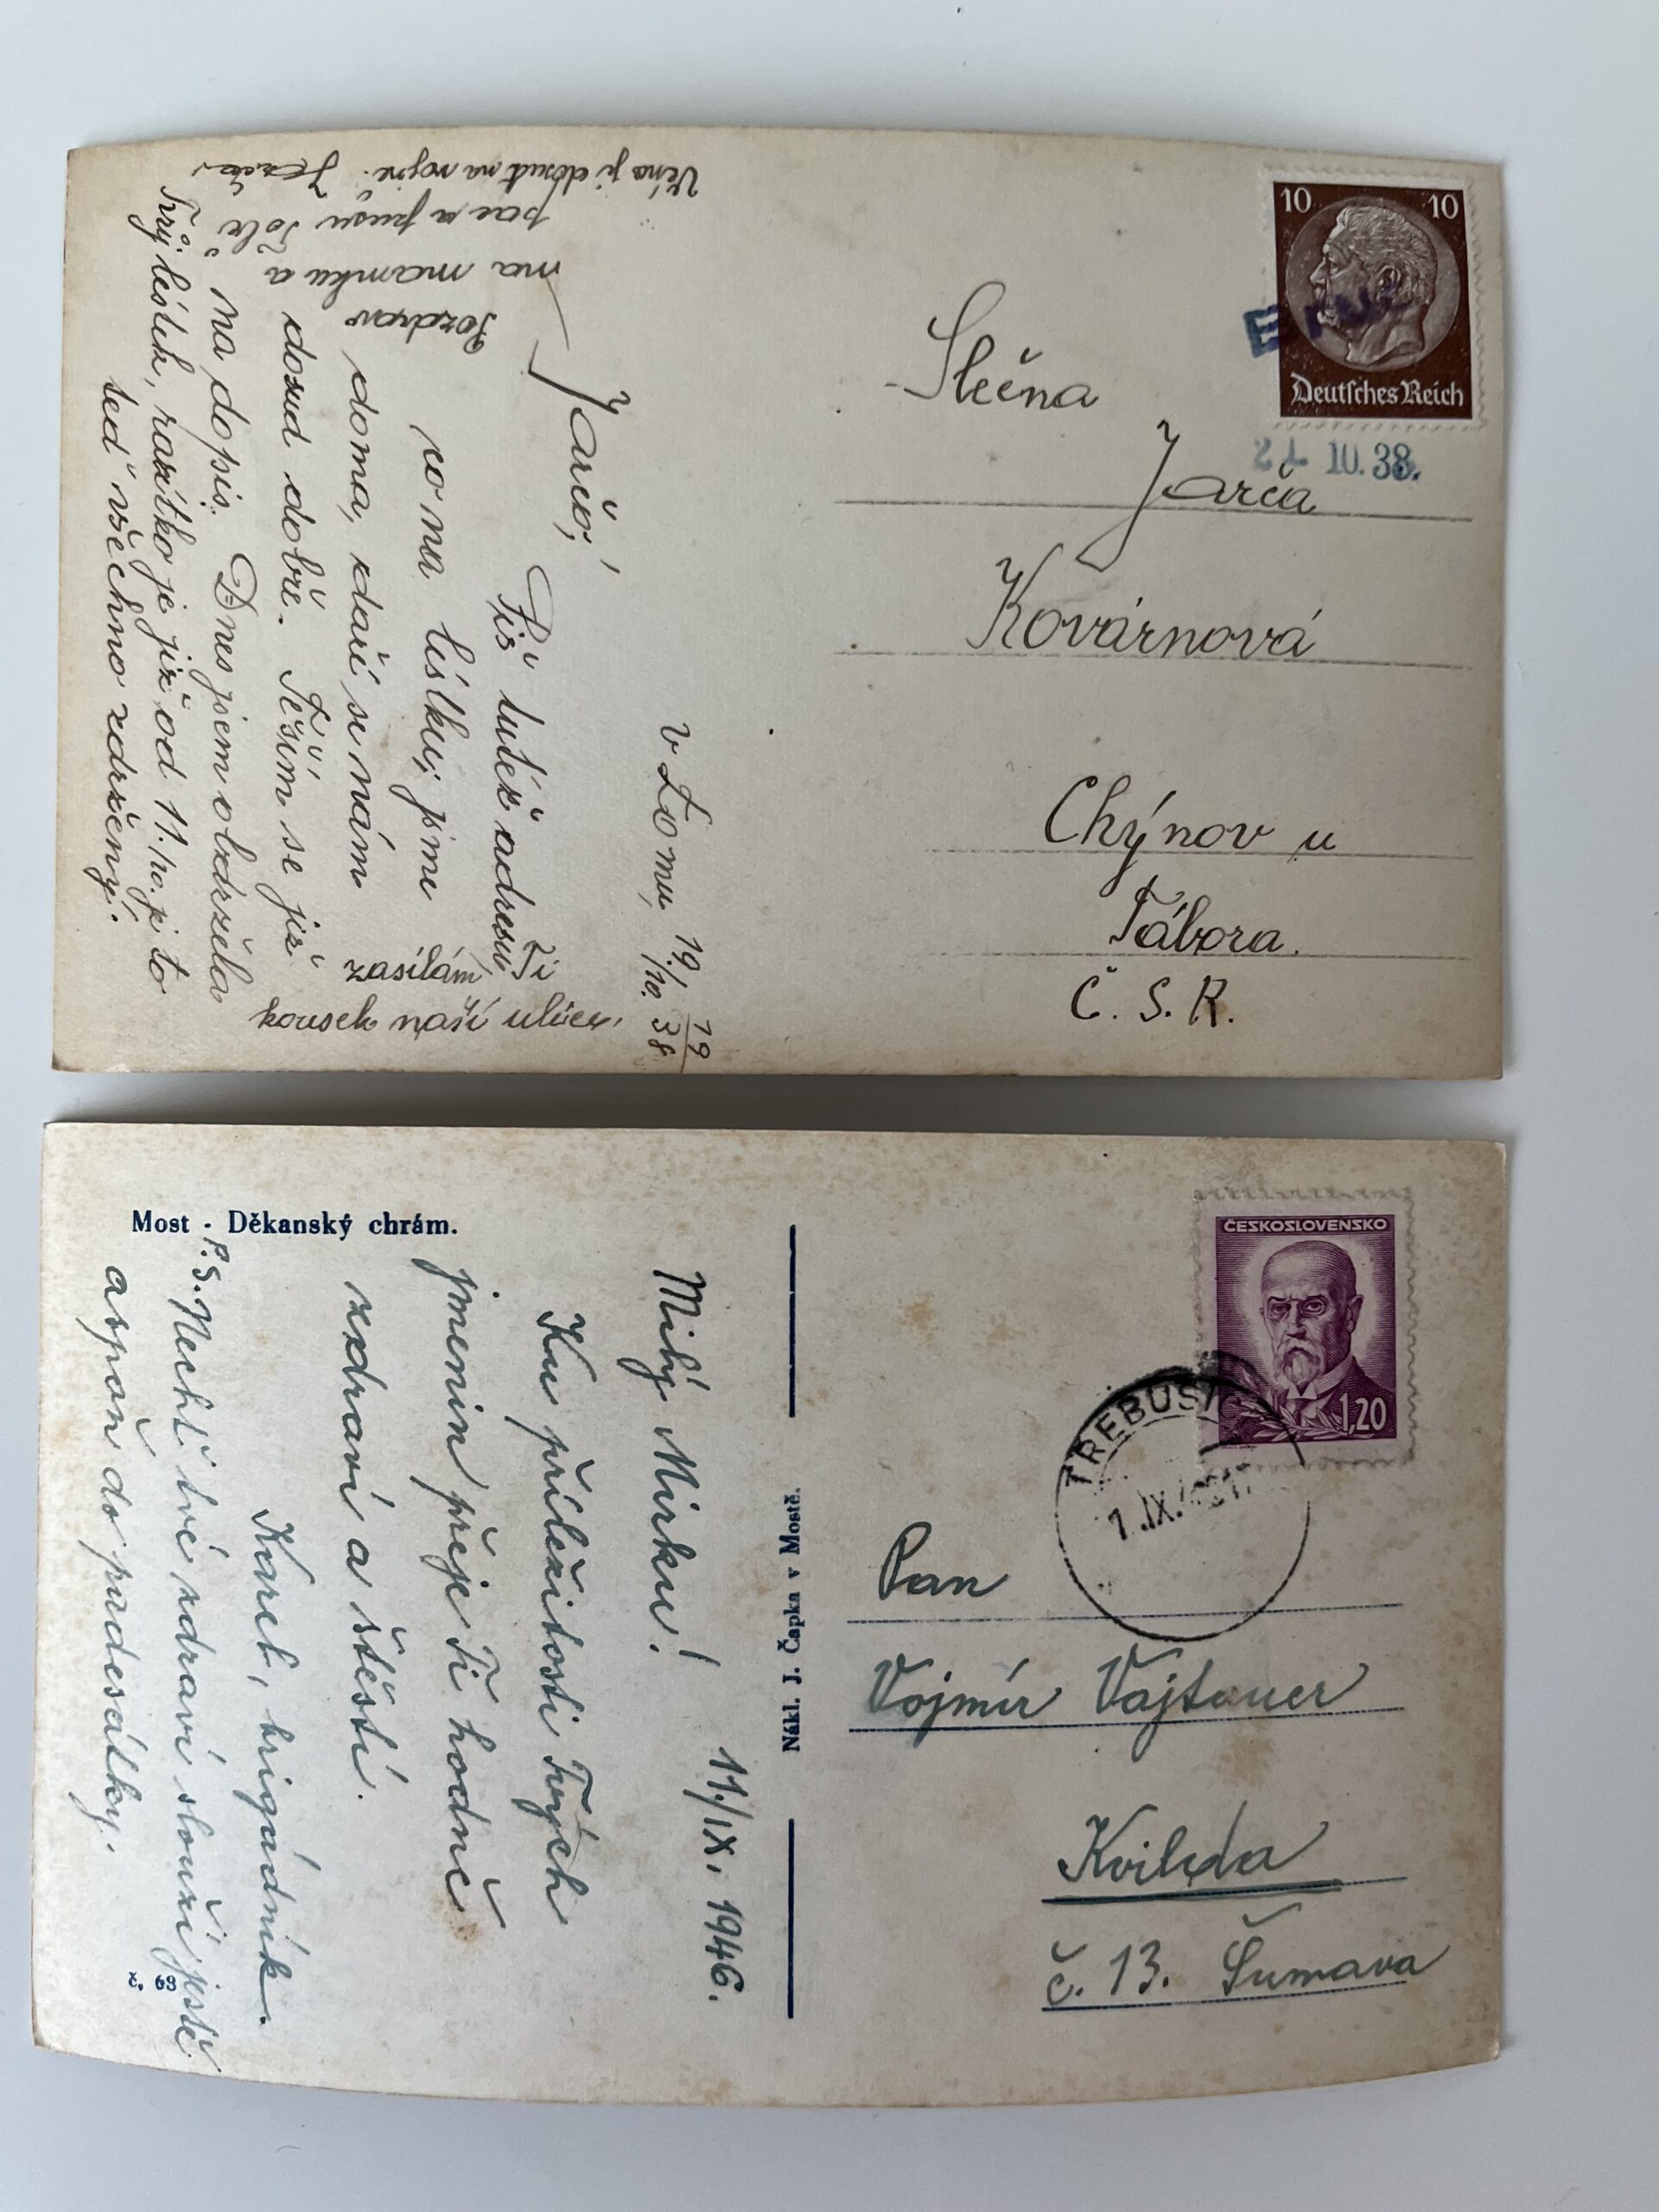 10 10
Deutsches Reich
10.38.
Slečna
Jarča
Kovárnová
Chýnov u
Tábora.
Č. S. R.
v Lomu, 19./10. 1938
Jarčo,
Piš tutéž adresu
co na lístku, jsme
doma, daří se nám
dosud dobře. Těším se již
na dopis. Dnes jsem obdržela
Tvůj lístek, razítko je již od 11./10. je to
teď všechno zdrženy.
zasílám Ti
kousek naší ulice.
Pozdrav
na mamku a
pac a pusu Tobě
dosud na vojně.
Most - Děkanský chrám.
Milý Mirku! 11./IX. 1946.
Ku příležitosti Tvých
jmenin přeje Ti hodně
zdraví a štěstí.
Karel, brigádník
P.S. Nechť tvé zdraví slouží ještě
aspoň do padesátky.
č. 63
Nákl. J. Čapka v Mostě.
ČESKOSLOVENSKO
1,20
TŘEBUŠI
Pan
Vojmír Vajtauer
Kvilda
č. 13. Šumava